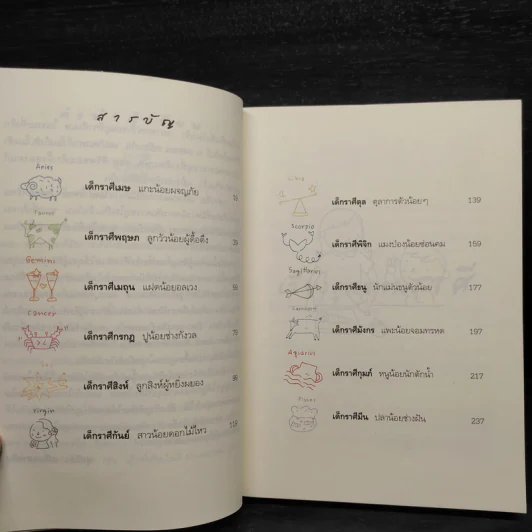 สารบัญ
Aries
เด็กราศีเมษ แกะน้อยผจญภัย
Taurus
เด็กราศีพฤษภ ลูกวัวน้อยผู้ดื้อดึง
Gemini
เด็กราศีเมถุน แฝดน้อยอลเวง
Cancer
เด็กราศีกรกฎ ปูน้อยช่างกังวล 79
เด็กราศีสิงห์ ลูกสิงห์ผู้หยิ่งผยอง
Virgin
เด็กราศีกันย์ สาวน้อยดอกไม้ไหว
Libra
เด็กราศีตุล ตุลาการตัวน้อยๆ 139
Scorpio
เด็กราศีพิจิก แมงป่องน้อยซ่อนคม 159
Sagittarius
เด็กราศีธนู นักแม่นธนูตัวน้อย 177
เด็กราศีมังกร แพะน้อยจอมทรหด 197
Aquarius
เด็กราศีกุมภ์ หนูน้อยนักตักน้ำ 217
Pisces
เด็กราศีมีน ปลาน้อยช่างฝัน 237